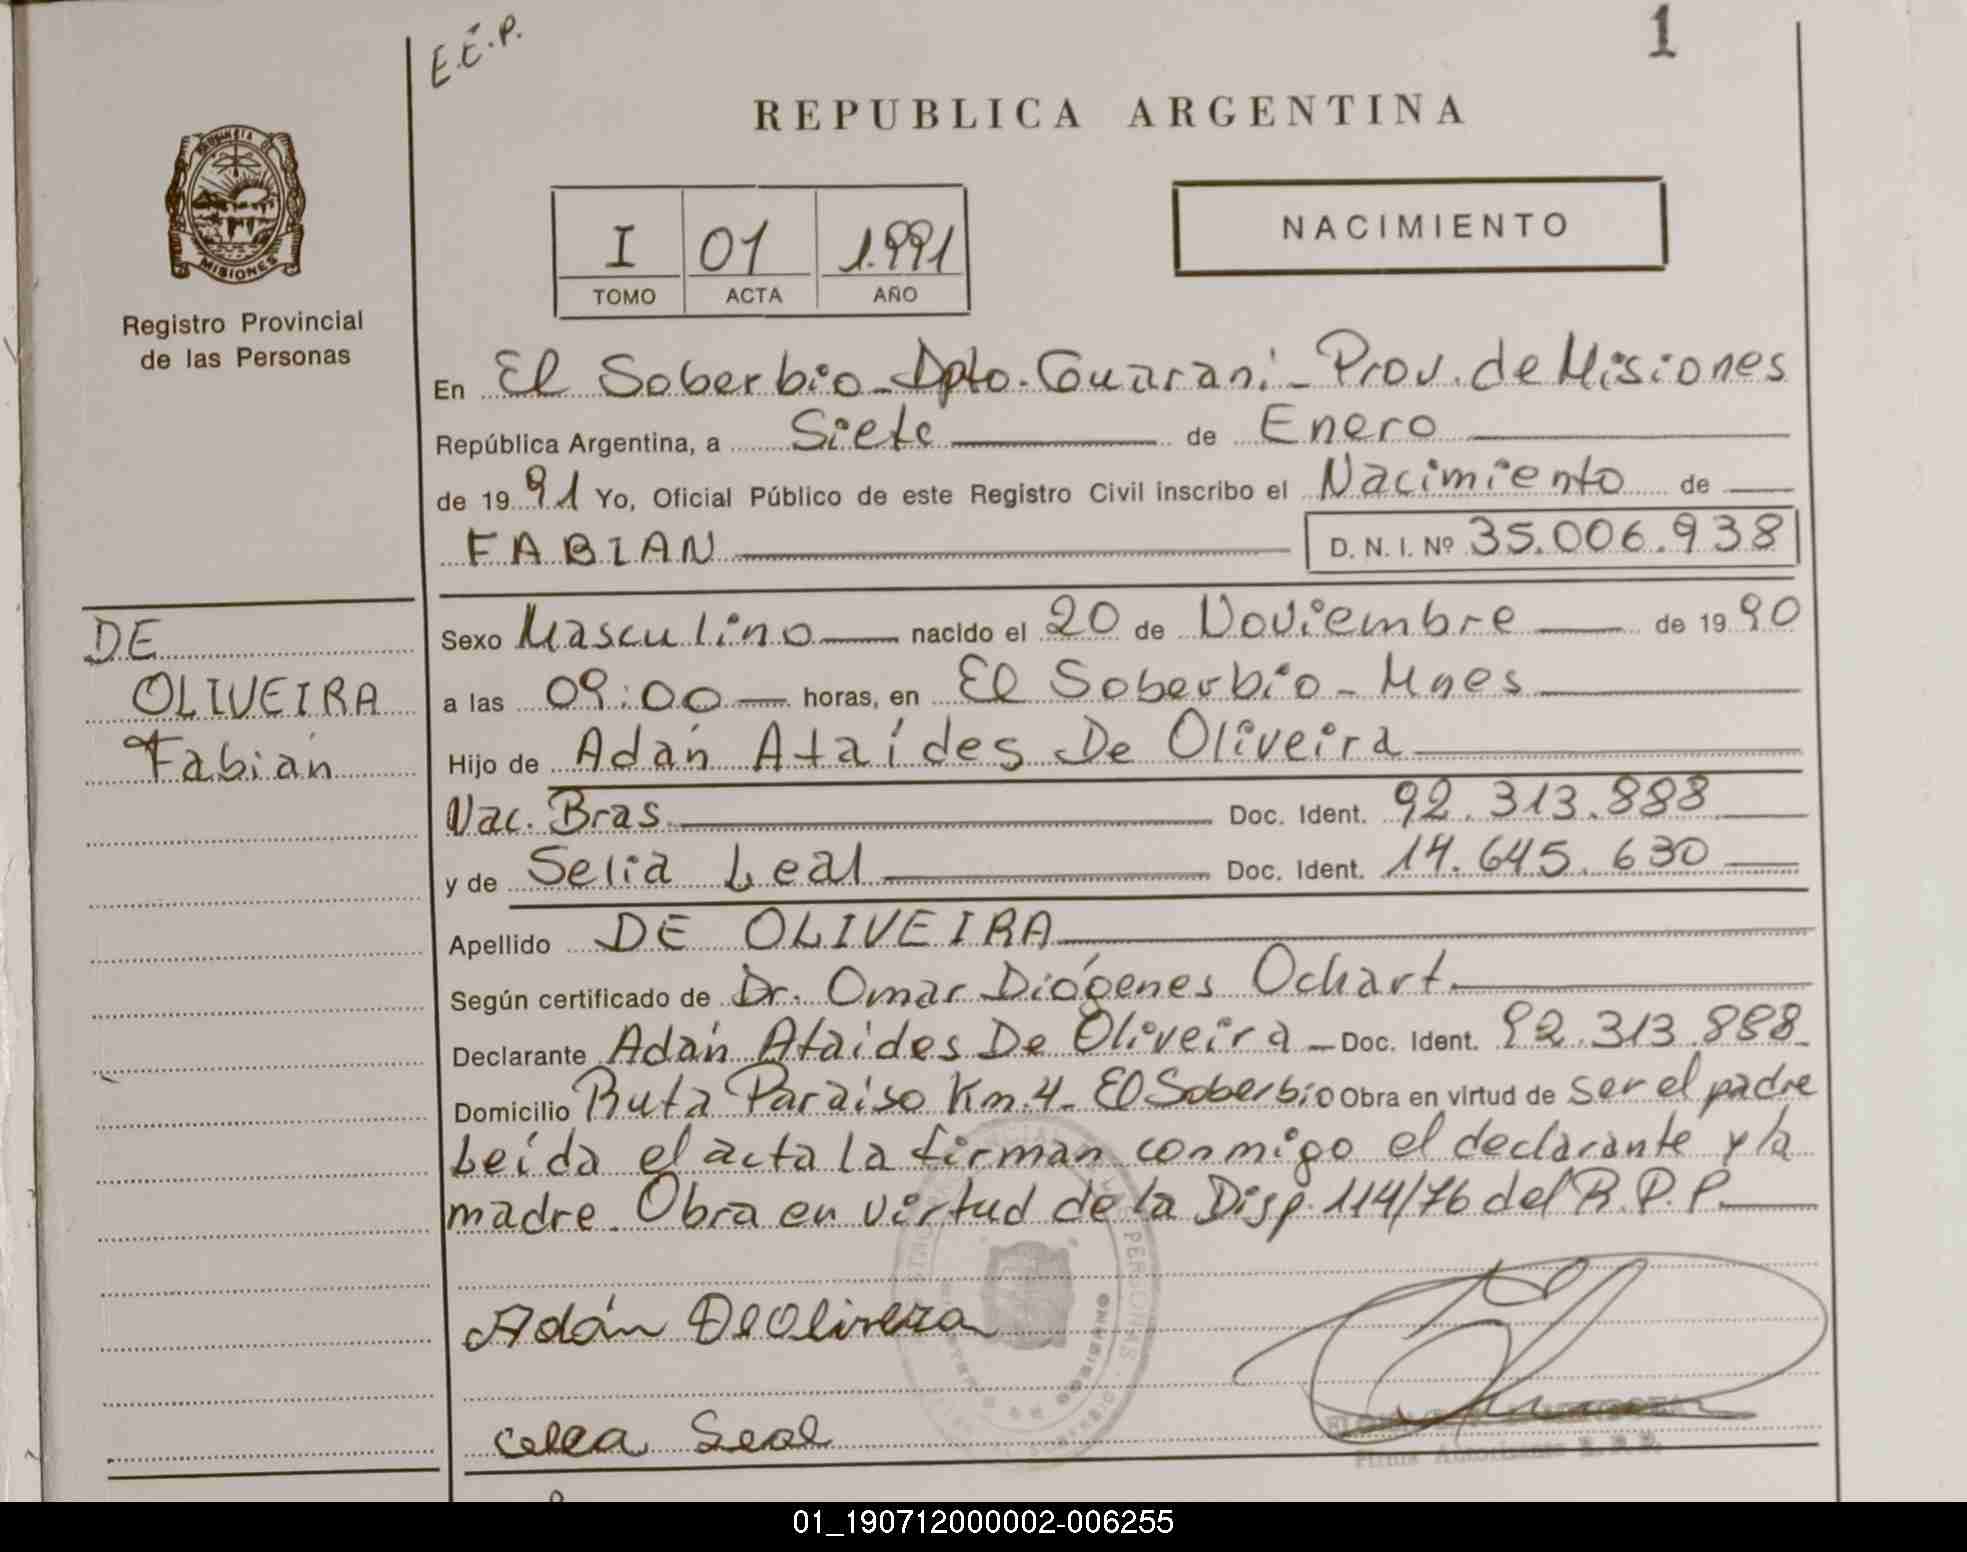 E.E.P.
1
REPUBLICA ARGENTINA
PROVINCIA DE
MISIONES
Registro Provincial
de las Personas
I 01 1.991
TOMO ACTA AÑO
NACIMIENTO
En El Soberbio - Dpto. Guaraní - Prov. de Misiones
República Argentina, a Siete de Enero
de 19 91 Yo, Oficial Público de este Registro Civil inscribo el Nacimiento de
FABIAN D. N. I. Nº 35.006.938
DE
OLIVEIRA
Fabián
Sexo Masculino nacido el 20 de Noviembre de 19 90
a las 09:00 horas, en El Soberbio - Mnes
Hijo de Adán Ataídes De Oliveira
Nac. Bras. Doc. Ident. 92.313.888
y de Selia Leal Doc. Ident. 14.645.630
Apellido DE OLIVEIRA
Según certificado de Dr. Omar Diógenes Ochart.
Declarante Adán Ataides De Oliveira - Doc. Ident. 92.313.888
Domicilio Ruta Paraiso Km. 4 - El Soberbio Obra en virtud de ser el padre
Leída el acta la firman conmigo el declarante y la
madre. Obra en virtud de la Disp. 114/76 del R.P.P.
Adán De Oliveira
Celea Leal
01_190712000002-006255